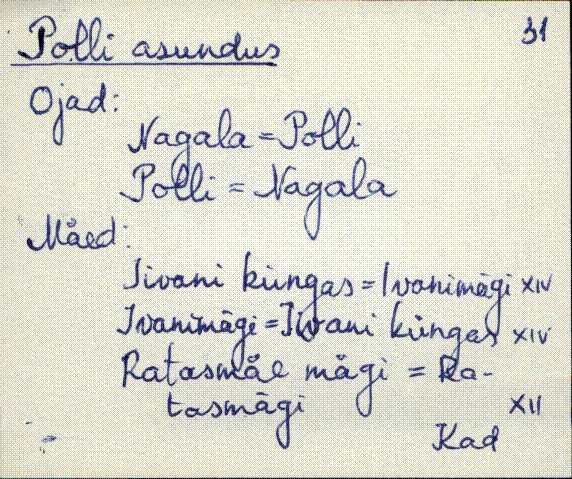 Polli asundus 31
Ojad:
Nagala = Polli
Polli = Nagala
Mäed:
Iivani küngas = Ivanimägi XIV
Ivanimägi = Iivani küngas XIV
Ratasmäe mägi = Ra-
tasmägi XII
Kad